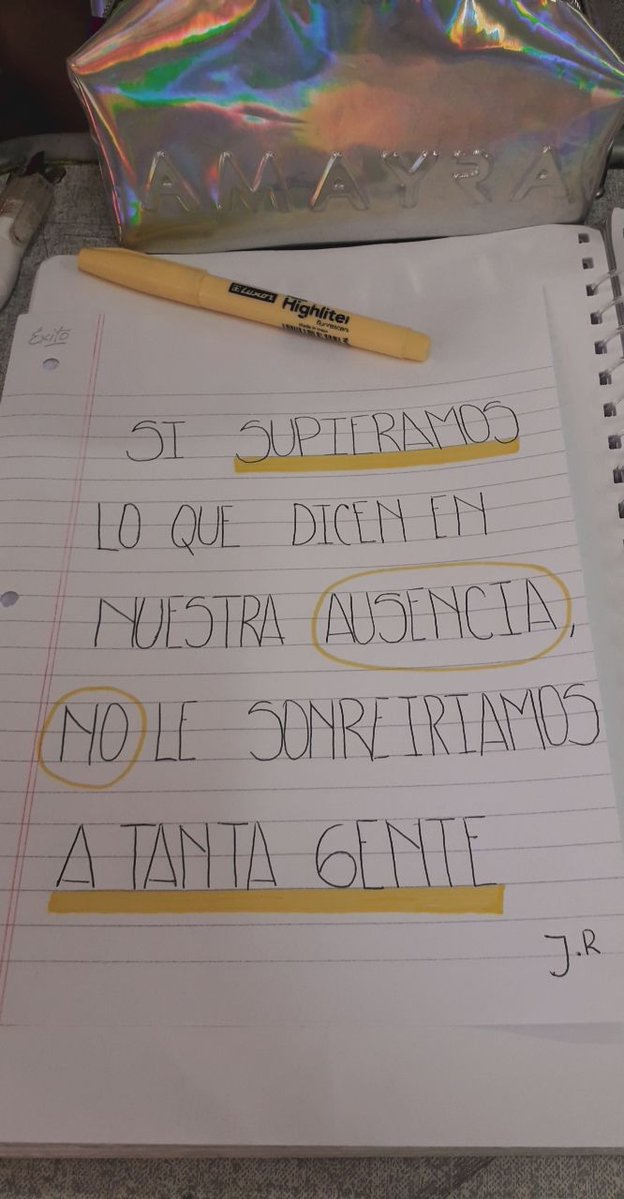 AMAYRA
Luxor
Highliter
fluorescent
Éxito
SI SUPIERAMOS
LO QUE DICEN EN
NUESTRA AUSENCIA,
NO LE SONREIRIAMOS
A TANTA GENTE
J.R